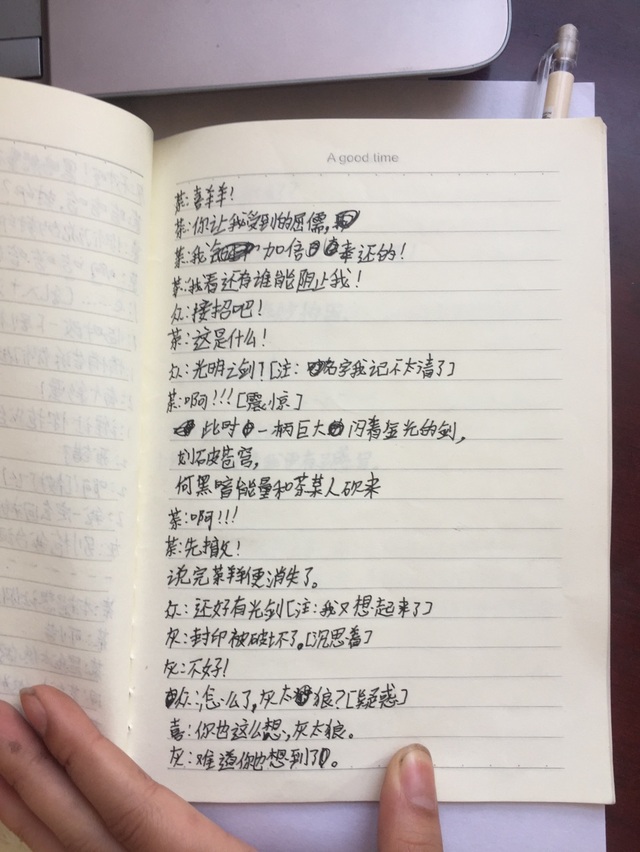 A good time
茶:喜羊羊!
茶:你让我受到的屈儒,
茶:我 加倍 奉还的!
茶:我看还有谁能阻止我!
众:接招吧!
茶:这是什么!
众:光明之剑?[注:名字我记不太清了]
茶:啊!!![震惊]
此时一柄巨大闪着金光的剑,
划破苍穹,
向黑暗能量和茶某人砍来
茶:啊!!!
茶:先撤!
说完茶羊羊便消失了。
众:还好有光剑[注:我又想起来了]
灰:封印被破坏了。[沉思着]
灰:不好!
众:怎么了,灰太狼?[疑惑]
喜:你也这么想,灰太狼。
灰:难道你也想到了。